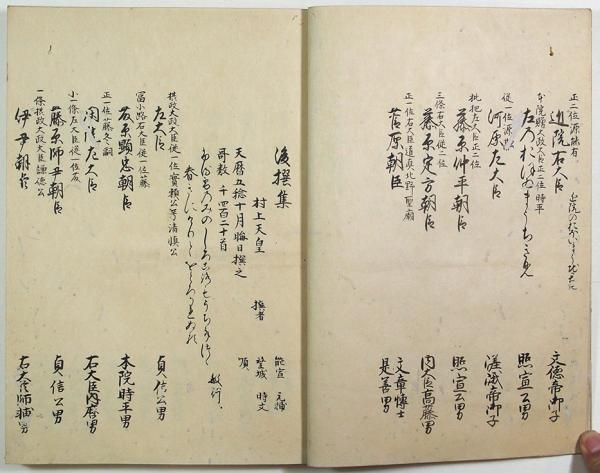 正二位源能有
近院右大臣
文徳帝御子
本院贈太政大臣正二位時平
照宣公男
従一位源
河原左大臣
嵯峨帝御子
枇杷左大臣正二位
藤原仲平朝臣
照宣公男
三条右大臣従二位
藤原定方朝臣
内大臣高藤男
正一位右大臣道真北野聖廟
菅原朝臣
文章博士
是善男
後撰集
村上天皇
撰者
能宣 元輔
望城 時文
順
天暦五稔十月晦日撰之
哥数 千四百二十首
敏行
摂政太政大臣従一位実頼公号清慎公
左大臣
貞信公男
富小路右大臣従二位藤
藤原顕忠朝臣
本院時平男
正一位藤冬嗣
閑院左大臣
右大臣内麿男
小一條左大臣従二位
藤原師尹朝臣
貞信公男
一條摂政太政大臣謙徳公
伊尹朝臣
右大臣師輔男